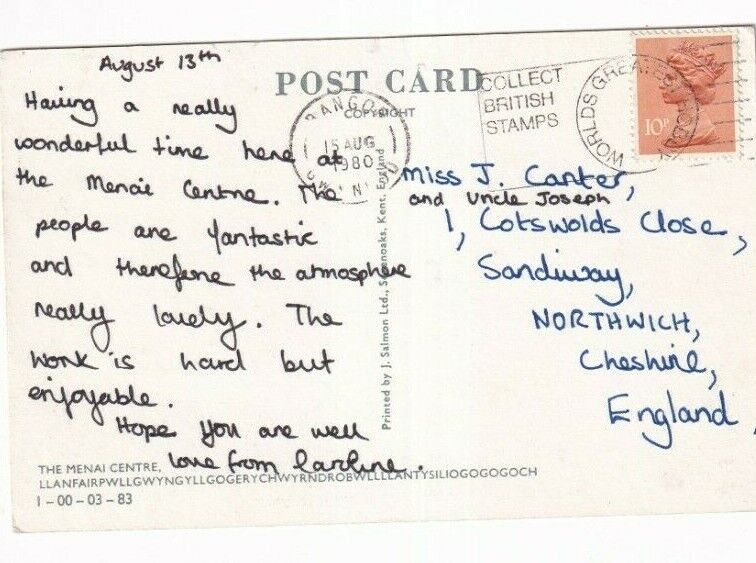 August 13th
Having a really
wonderful time here at
the Menai Centre. The
people are fantastic
and therefore the atmosphere
really lovely. The
work is hard but
enjoyable.
Hope you are well
love from Caroline.
POST CARD
COPYRIGHT
BANGOR
15 AUG
1980
GWYNEDD
COLLECT
BRITISH
STAMPS
WORLDS GREATEST HOBBY
10P
Miss J. Canter,
and Uncle Joseph
1, Cotswolds Close,
Sandiway,
NORTHWICH,
Cheshire,
England,
Printed by J. Salmon Ltd., Sevenoaks, Kent. England
THE MENAI CENTRE,
LLANFAIRPWLLGWYNGYLLGOGERYCHWYRNDROBWLLLLANTYSILIOGOGOGOCH
1 – 00 – 03 – 83